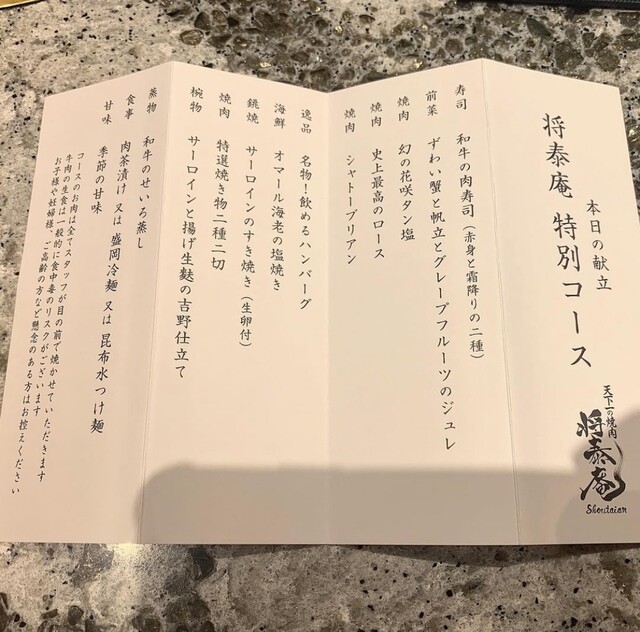 本日の献立
将泰庵 特別コース
天下一の焼肉
将泰庵
Shoutaian
寿司 和牛の肉寿司(赤身と霜降りの二種)
前菜 ずわい蟹と帆立とグレープフルーツのジュレ
焼肉 幻の花咲タン塩
焼肉 史上最高のロース
焼肉 シャトーブリアン
逸品 名物!飲めるハンバーグ
海鮮 オマール海老の塩焼き
銚焼 サーロインのすき焼き(生卵付)
焼肉 特選焼き物二種二切
椀物 サーロインと揚げ生麩の吉野仕立て
蒸物 和牛のせいろ蒸し
食事 肉茶漬け 又は 盛岡冷麺 又は 昆布水つけ麺
甘味 季節の甘味
コースのお肉は全てスタッフが目の前で焼かせていただきます
牛肉の生食は一般的に食中毒のリスクがございます
お子様や妊婦様、ご高齢の方など懸念のある方はお控えください